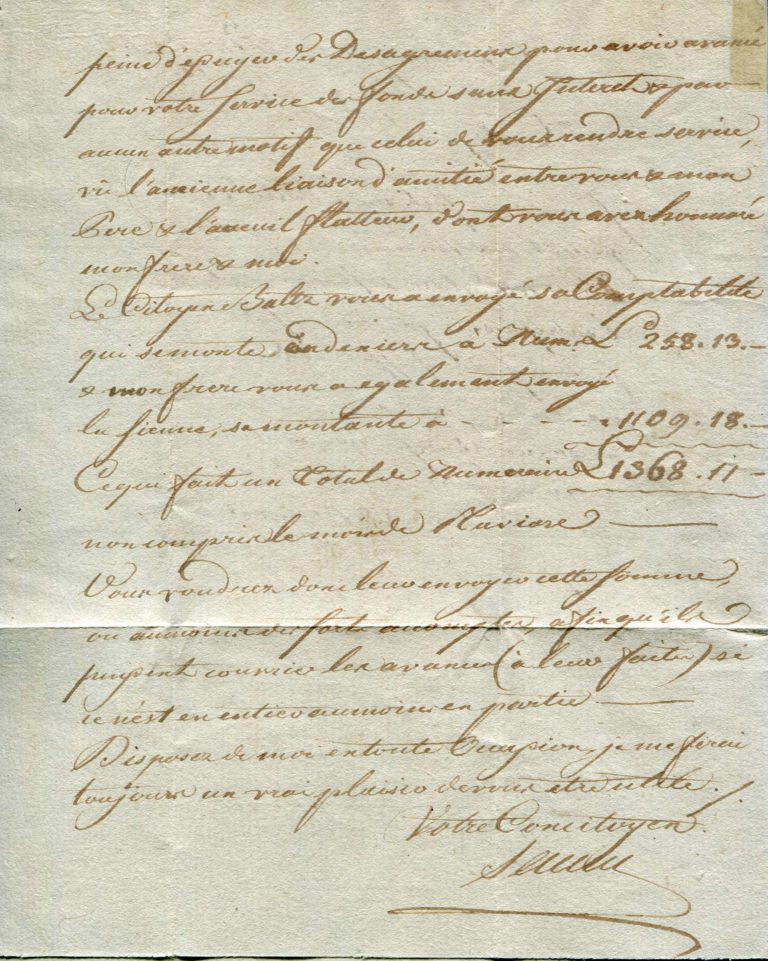 peine d'epuyer des Desagremens pour avoir avancé
pour votre Service des fonds sans Interet & par
aucun autre motif que celui de vous rendre service,
vû l'ancienne liaison d'amitié entre vous & mon
Pere & l'acceuil flatteur, dont vous avez honnoré
mon frere & moi.
Le Citoyen Baltz vous a envoyé sa Comptabilité
qui se monte en deniers à Num. L 258.13.-
& mon frere vous a egalement envoyé
la Sienne, se montante à - - - - 1109.18.-
Ce qui fait un Total de Numeraire L 1368.11-
non compris le mois de Pluviose
Vous voudrez donc leur envoyer cette Somme,
ou aumoins des forts acomptes, afin qu'ils
puissent couvrir les avances (à leur faites) si
ce n'est en entier aumoins en partie
Disposez de moi en toute Occasion, je me ferai
toujours un vrai plaisir de vous être utile.
Votre Concitoyen.